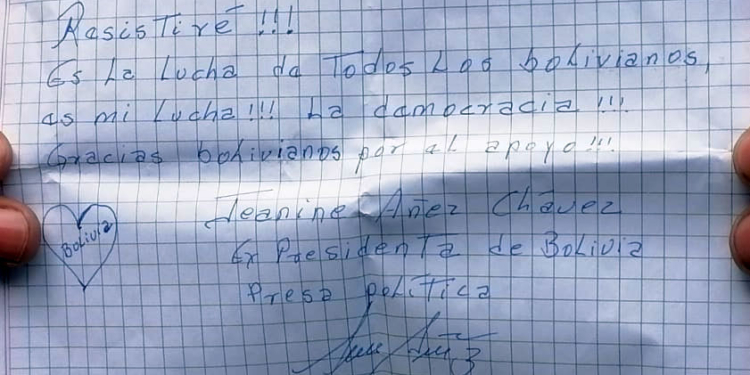 Resistiré !!!
Es La Lucha de Todos Los bolivianos,
es mi Lucha!!! La democracia !!!
Gracias bolivianos por el apoyo!!!
Jeanine Añez Chávez
Ex Presidenta de Bolivia
Presa política
Bolivia